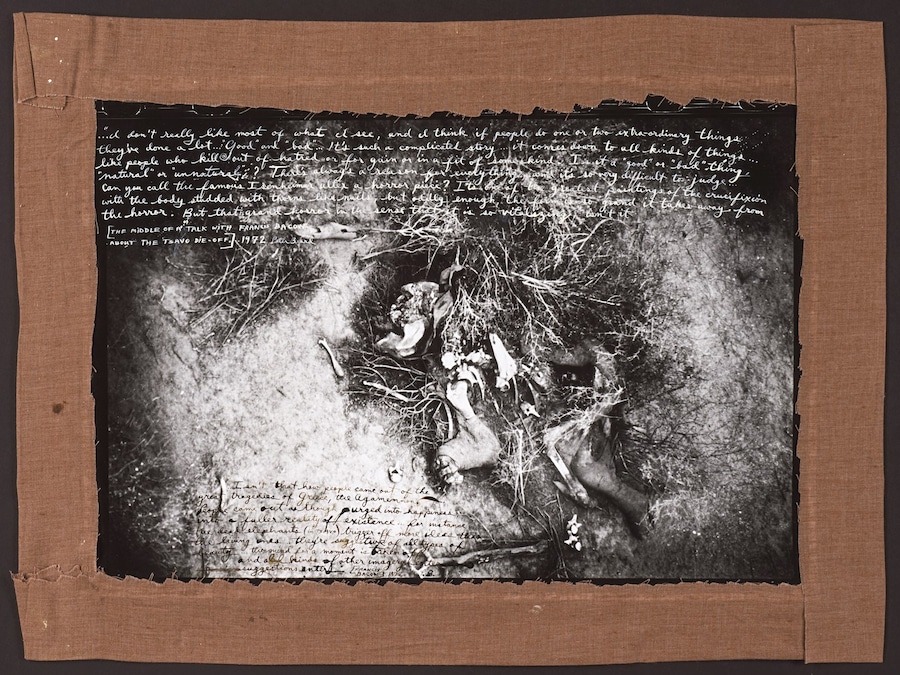 "...I don't really like most of what I see, and I think if people do one or two extraordinary things
they've done a lot... "Good" and "bad"... It's such a complicated story... it comes down to all kinds of things...
like people who kill out of hatred or for gain or in a fit of some kind. Is it a "good" or "bad" thing
"natural" or "unnatural"? There's always a reason for everything and it's so very difficult to judge.
Can you call the famous Isenheimer alter a horror piece? Its one of the greatest paintings of the crucifixion
with the body studded with thorns like nails but oddly enough the form is so grand it takes away from
the horror. But that grand horror in the sense that it is so vitalizing, isn't it
[THE MIDDLE OF A TALK WITH FRANCIS BACON
ABOUT THE TSAVO DIE-OFF] 1972
Isn't that how people came out of the
great tragedies of Greece, the Agamemnon,
People came out as though purged into happiness
into a fuller reality of existence. For instance
the dead elephants trigger off more ideas than
living ones. They're suggestive of all types of
for a moment
and all kinds of other imagery
suggestions enter